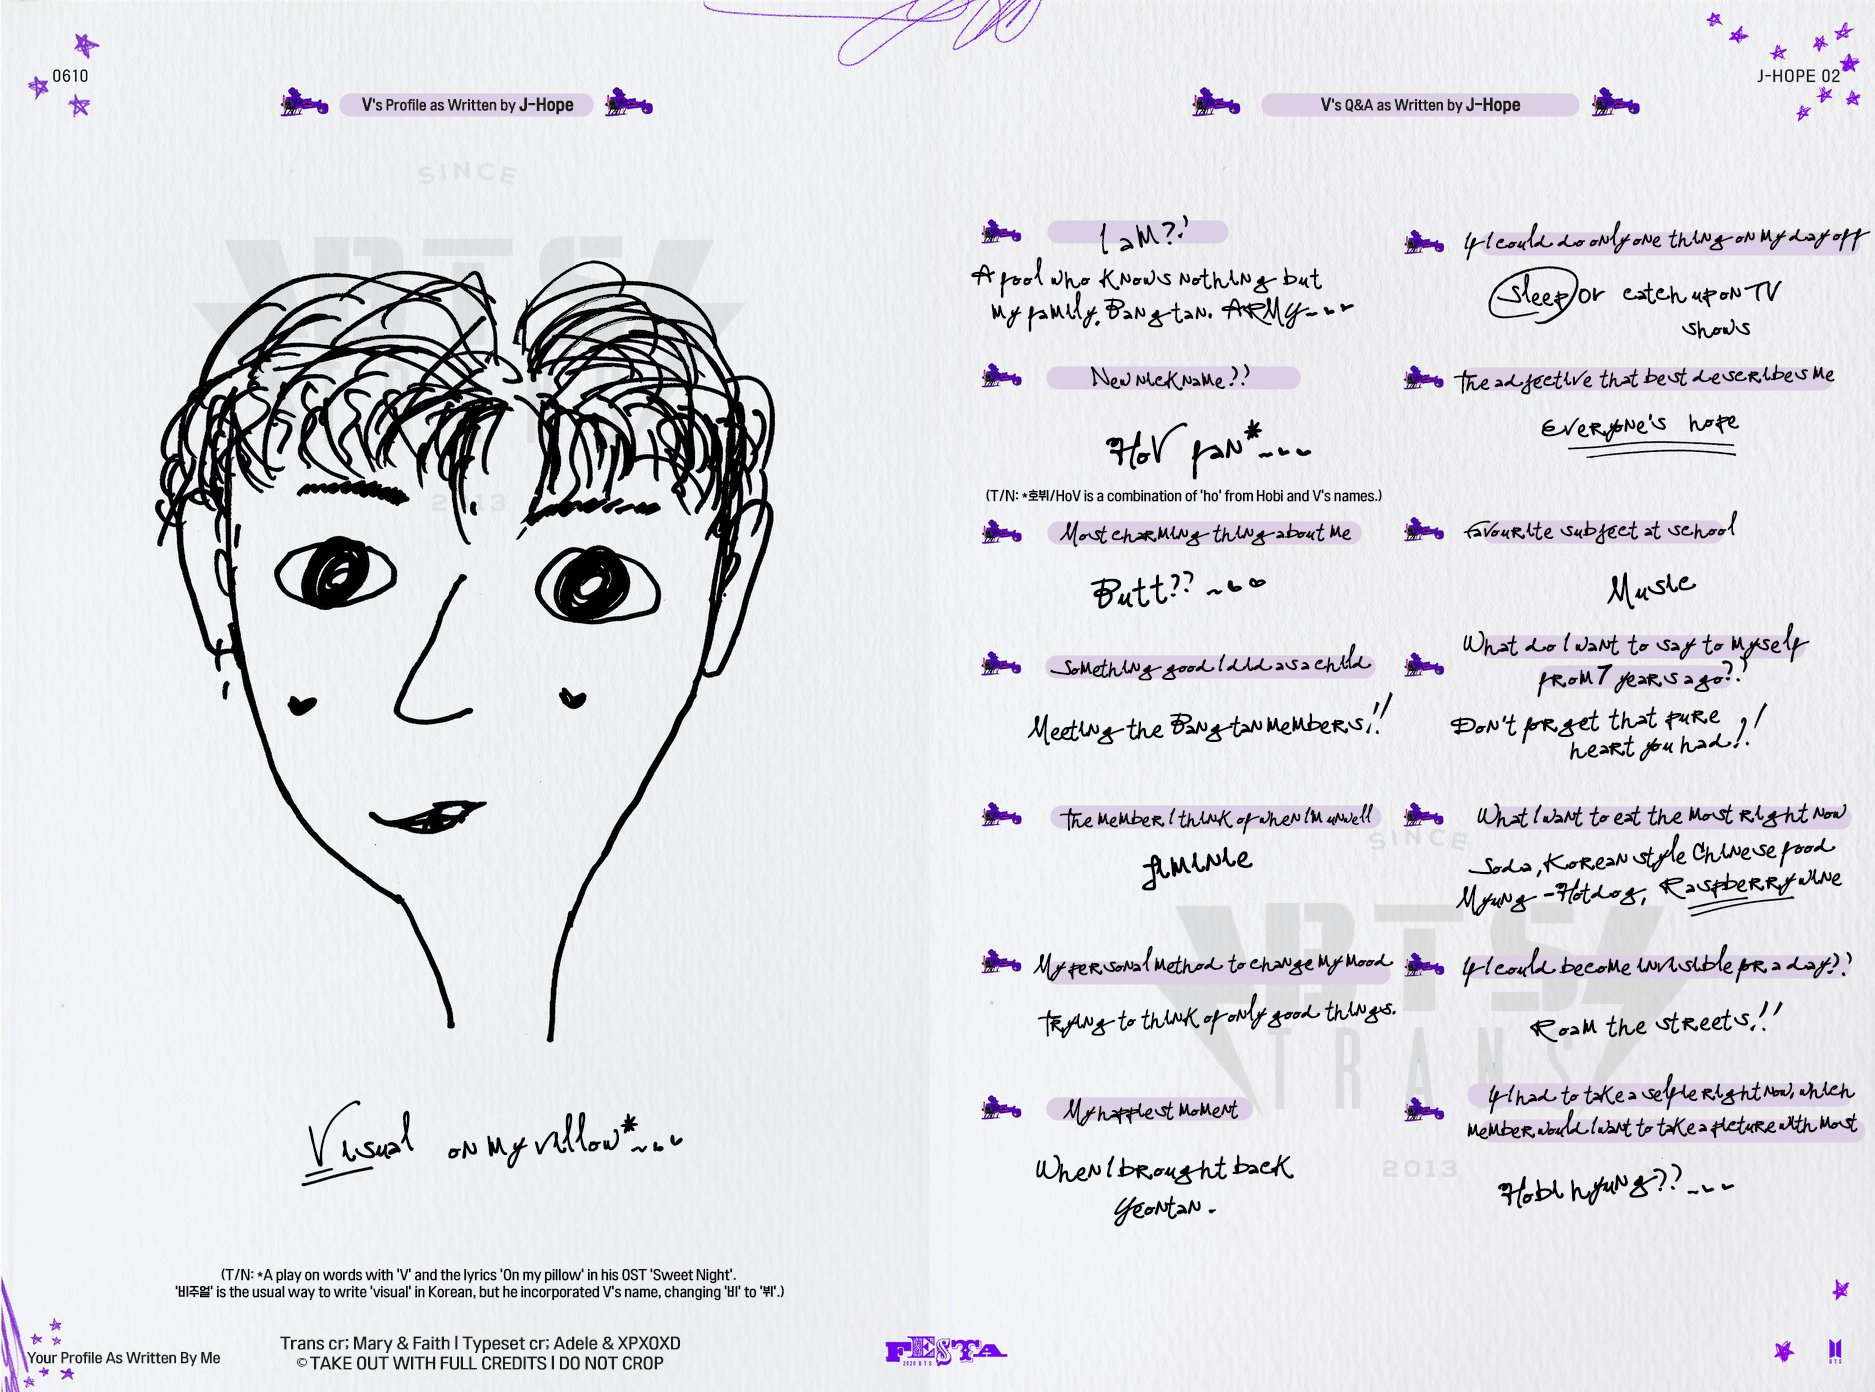 0610
V's Profile as Written by J-Hope
SINCE
BTS
2013
Visual on my villow*~~~
(T/N: *A play on words with 'V' and the lyrics 'On my pillow' in his OST 'Sweet Night'.
'비주얼' is the usual way to write 'visual' in Korean, but he incorporated V's name, changing '비' to '뷔'.)
Trans cr; Mary & Faith | Typeset cr; Adele & XPXOXD
© TAKE OUT WITH FULL CREDITS | DO NOT CROP
Your Profile As Written By Me
FESTA
2020 BTS
J-HOPE 02
V's Q&A as Written by J-Hope
I am??
A fool who knows nothing but
my family, Bangtan. ARMY~~~
New nickname??
HoV fan*~~~
(T/N: *호뷔/HoV is a combination of 'ho' from Hobi and V's names.)
Most charming thing about me
Butt?? ~~~
Something good I did as a child
Meeting the Bangtan members!!
The member I think of when I'm unwell
Jiminie
My personal method to change my mood
Trying to think of only good things.
My happiest moment
When I brought back
Yeontan.
If I could do only one thing on my day off
Sleep or catch up on TV
shows
The adjective that best describes me
Everyone's hope
Favourite subject at school
Music
What do I want to say to myself
from 7 years ago??
Don't forget that pure
heart you had!!
What I want to eat the most right now
Soda, Korean style Chinese food
Myung-Hotdog, Raspberry wine
If I could become invisible for a day??
Roam the streets!!
If I had to take a selfie right now, which
member would I want to take a picture with most
Hobi hyung??~~~
SINCE
BTS
TRANS
2013
BTS